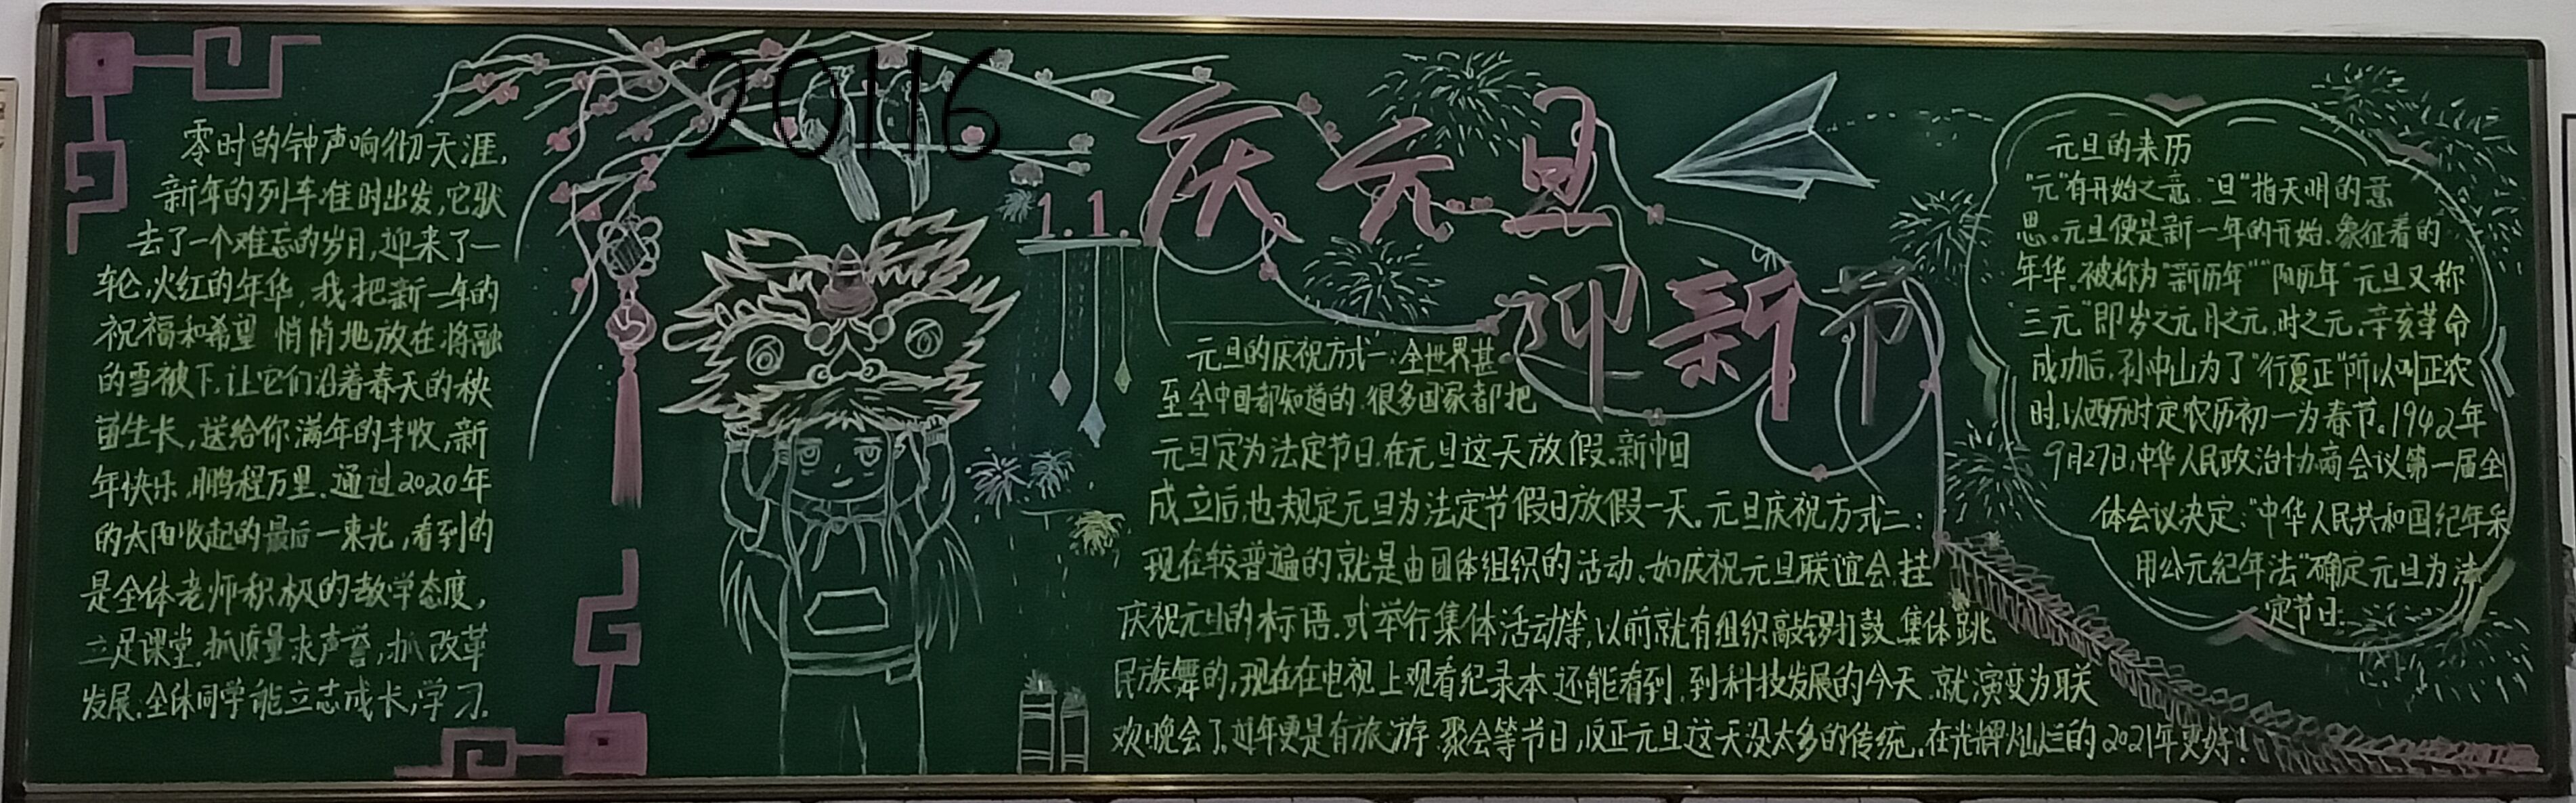 20116
零时的钟声响彻天涯,
新年的列车准时出发,它驮
去了一个难忘的岁月,迎来了一
轮,火红的年华,我把新一年的
祝福和希望 悄悄地放在将融
的雪被下,让它们沿着春天的秧
苗生长,送给你满年的丰收,新
年快乐,鹏程万里.通过2020年
的太阳收起的最后一束光,看到的
是全体老师积极的教学态度,
立足课堂.抓质量求声誉,抓改革
发展.全体同学能立志成长,学习.
1.1.庆元旦
迎新节
元旦的庆祝方式一:全世界甚
至全中国都知道的.很多国家都把
元旦定为法定节日.在元旦这天放假.新中国
成立后,也规定元旦为法定节假日放假一天.元旦庆祝方式二:
现在较普遍的,就是由团体组织的活动、如庆祝元旦联谊会.挂
庆祝元旦的标语.或举行集体活动等,以前就有组织敲锣打鼓.集体跳
民族舞的,现在在电视上观看纪录本还能看到.到科技发展的今天.就演变为联
欢晚会了.过年更是有旅游.聚会等节日,仅正元旦这天没太多的传统.在光辉灿烂的2021年更好!
元旦的来历
"元"有开始之意."旦"指天明的意
思.元旦便是新一年的开始.象征着的
年华.被称为"新历年""阳历年"元旦又称
三元"即岁之元.月之元.时之元.辛亥革命
成功后.孙中山为了"行夏正"所以叫正农
时,以西历时定农历初一为春节.1942年
9月27日,中华人民政治协商会议第一届全
体会议决定:"中华人民共和国纪年采
用公元纪年法"确定元旦为法
定节日.